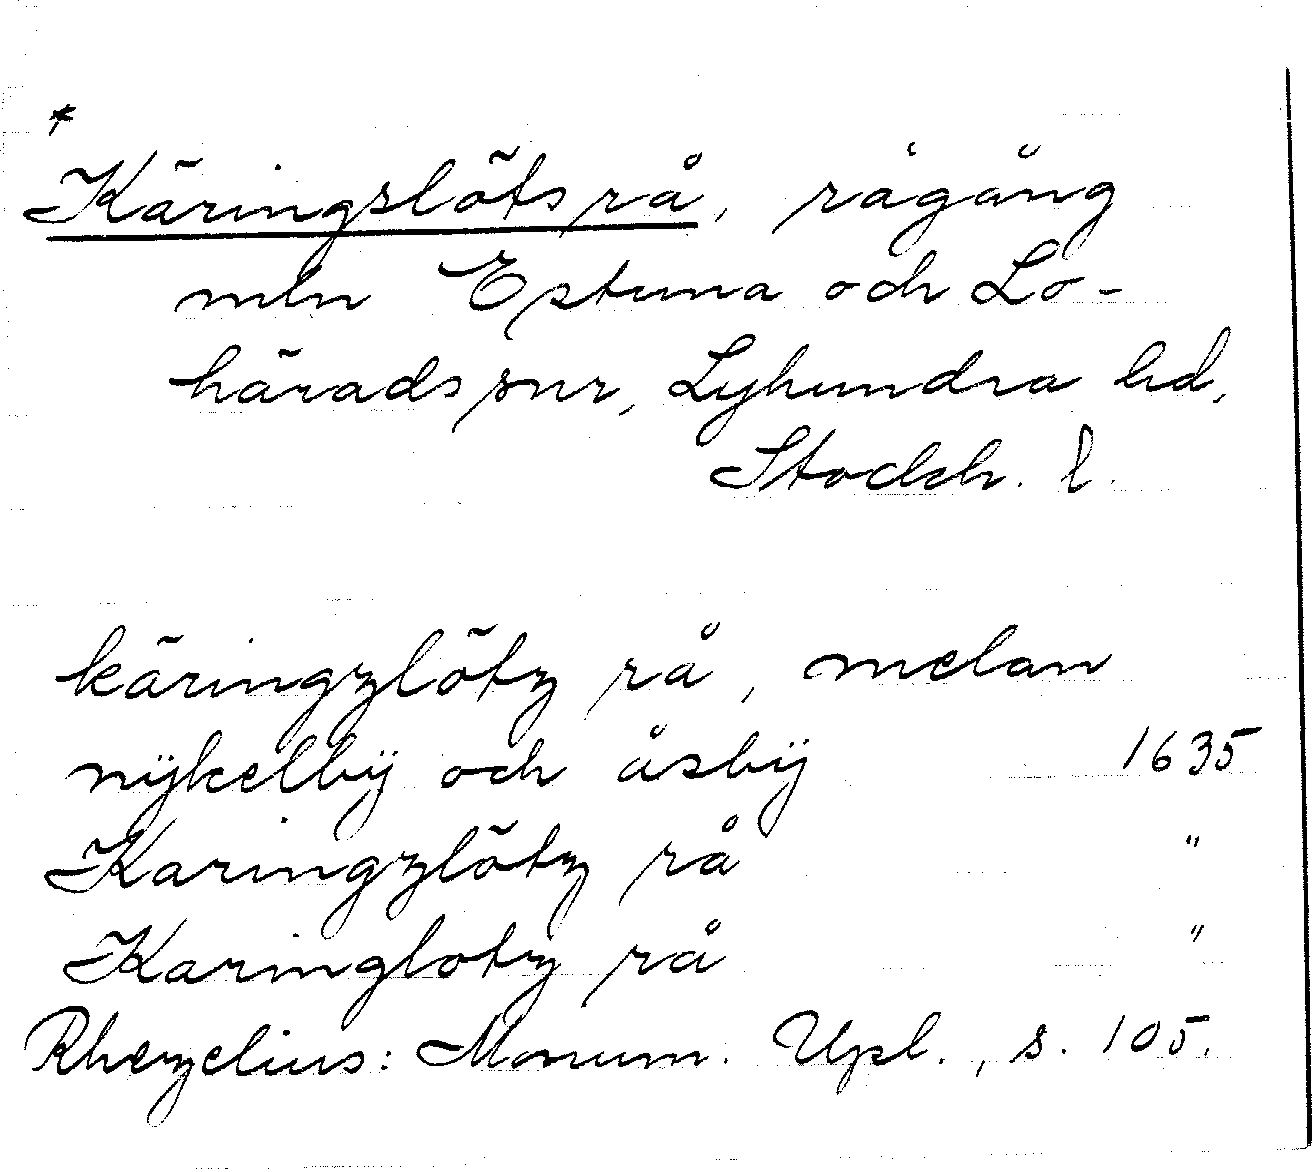 *
Käringslötsrå, rågång
mln Estuna och Lo-
härads snr, Lyhundra hd,
Stockh. l.
käringzlötz rå, melan
nÿkelbÿ och åsbÿ 1635
Karingzlötz rå "
Karinglotz rå "
Rhezelius: Monum. Upl., s. 105.